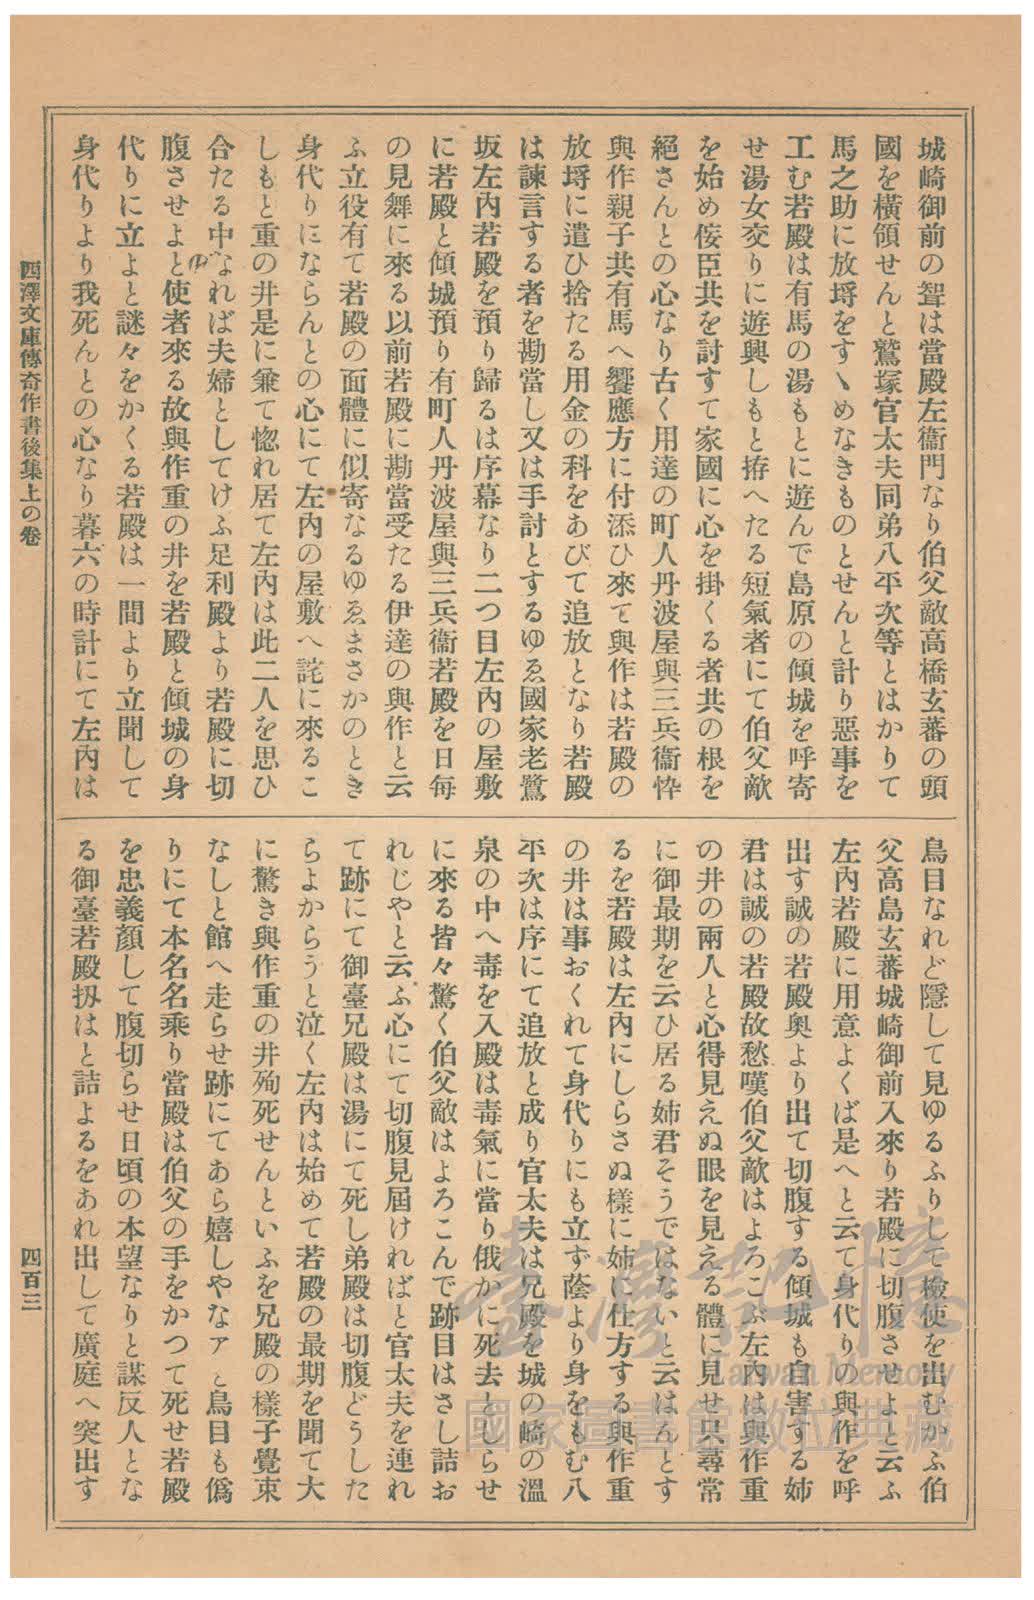 城崎御前の聟は當殿左衞門なり伯父敵高橋玄蕃の頭
國を橫領せんと鷲塚官太夫同弟八平次等とはかりて
馬之助に放埓をすゝめなきものとせんと計り惡事を
工む若殿は有馬の湯もとに遊んで島原の傾城を呼寄
せ湯女交りに遊興しもと拵へたる短氣者にて伯父敵
を始め侫臣共を討すて家國に心を掛くる者共の根を
絕さんとの心なり古く用達の町人丹波屋與三兵衞忰
與作親子共有馬へ饗應方に付添ひ來て與作は若殿の
放埓に遣ひ捨たる用金の科をあびて追放となり若殿
は諫言する者を勘當し又は手討とするゆゑ國家老鷺
坂左內若殿を預り歸るは序幕なり二つ目左內の屋敷
に若殿と傾城預り有町人丹波屋與三兵衞若殿を日每
の見舞に來る以前若殿に勘當受たる伊達の與作と云
ふ立役有て若殿の面體に似寄なるゆゑまさかのとき
身代りにならんとの心にて左內の屋敷へ詫に來るこ
しもと重の井是に兼て惚れ居て左內は此二人を思ひ
合たる中なれば夫婦としてけふ足利殿より若殿に切
腹させよと使者來る故與作重の井を若殿と傾城の身
代りに立よと謎々をかくる若殿は一間より立聞して
身代りより我死んとの心なり暮六の時計にて左內は
鳥目なれど隱して見ゆるふりして檢使を出むかふ伯
父高島玄蕃城崎御前入來り若殿に切腹させよと云ふ
左內若殿に用意よくば是へと云て身代りの與作を呼
出す誠の若殿奧より出て切腹する傾城も自害する姊
君は誠の若殿故愁嘆伯父敵はよろこぶ左內は與作重
の井の兩人と心得見えぬ眼を見える體に見せ只尋常
に御最期を云ひ居る姊君そうではないと云はんとす
るを若殿は左內にしらさぬ樣に姊に仕方する與作重
の井は事おくれて身代りにも立ず蔭より身をもむ八
平次は序にて追放と成り官太夫は兄殿を城の崎の溫
泉の中へ毒を入殿は毒氣に當り俄かに死去としらせ
に來る皆々驚く伯父敵はよろこんで跡目はさし詰お
れじやと云ふ心にて切腹見屆ければと官太夫を連れ
て跡にて御臺兄殿は湯にて死し弟殿は切腹どうした
らよからうと泣く左內は始めて若殿の最期を聞て大
に驚き與作重の井殉死せんといふを兄殿の樣子覺束
なしと館へ走らせ跡にてあら嬉しやなァと鳥目も僞
りにて本名名乘り當殿は伯父の手をかつて死せ若殿
を忠義顏して腹切らせ日頃の本望なりと謀反人とな
る御臺若殿扨はと詰よるをあれ出して廣庭へ突出す
西澤文庫傳奇作書後集上の卷
四百三
臺灣記憶
Taiwan Memory
國家圖書館數位典藏